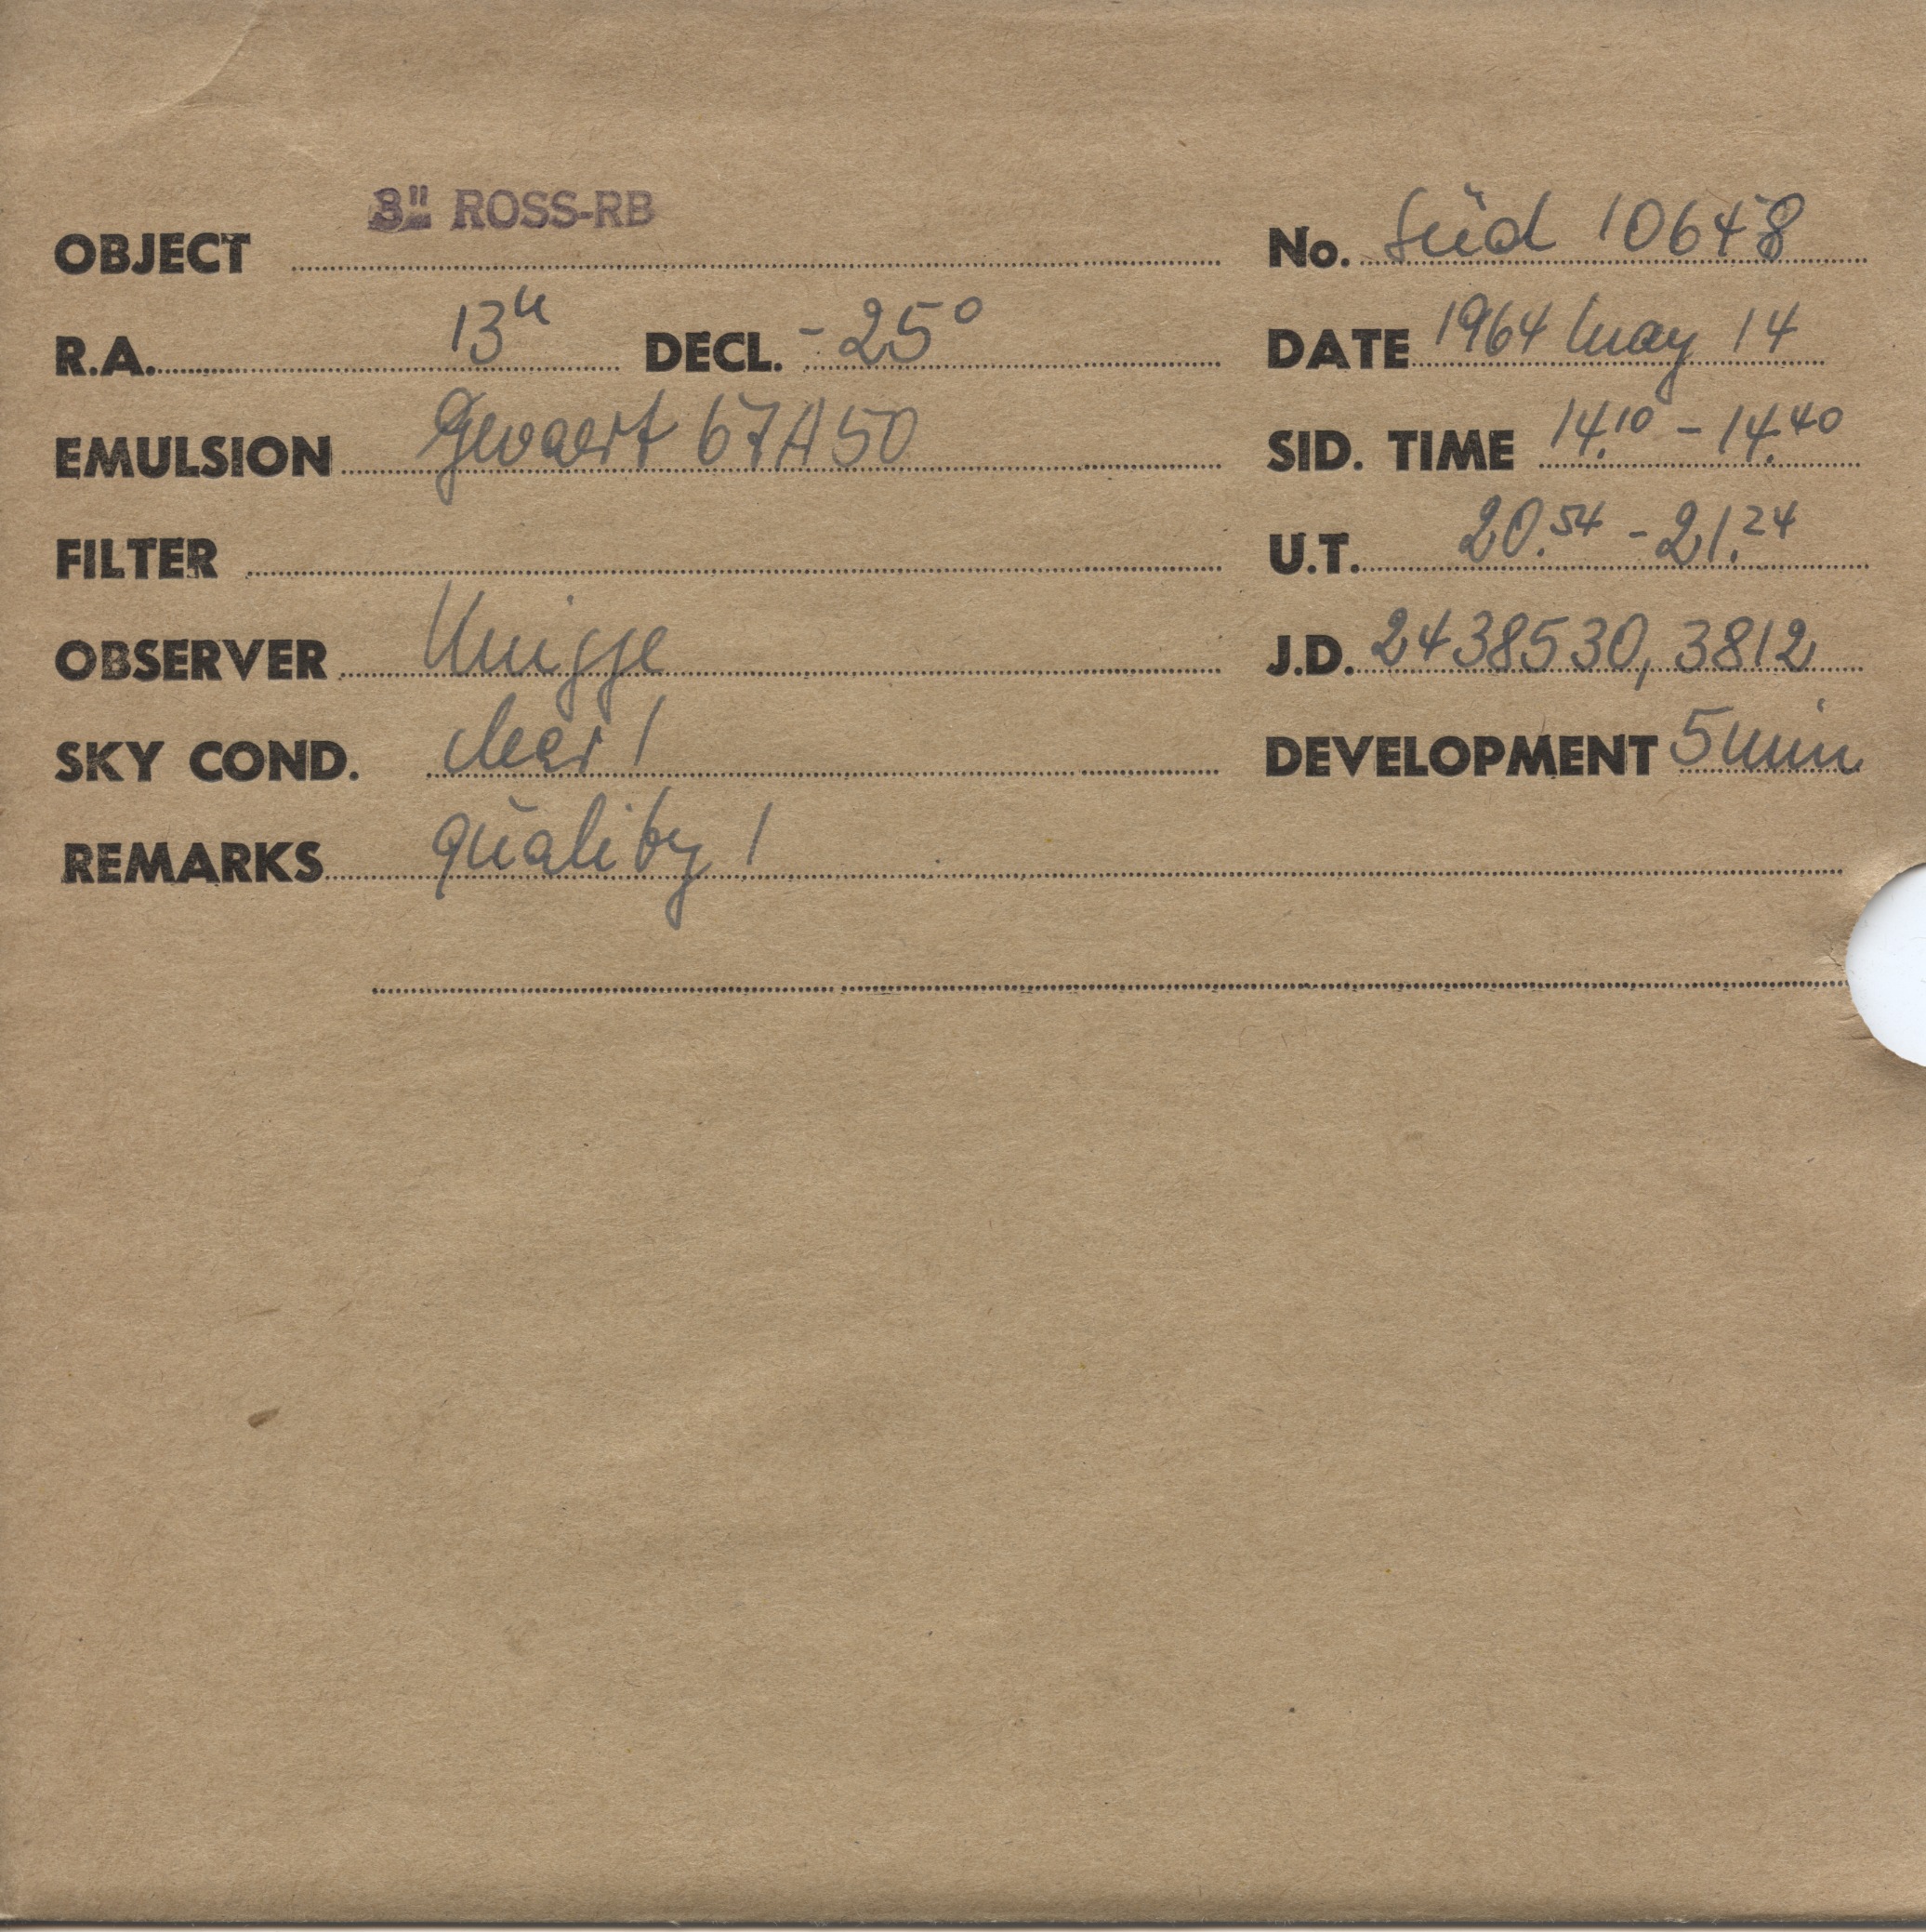 3" ROSS-RB
OBJECT No. Süd 10648
R.A. 13h DECL. -25° DATE 1964 May 14
EMULSION Gevaert 67A50 SID. TIME 14.10 - 14.40
FILTER U.T. 20.54 - 21.24
OBSERVER Knigge J.D. 2438530,3812
SKY COND. clear 1 DEVELOPMENT 5 min
REMARKS quality 1